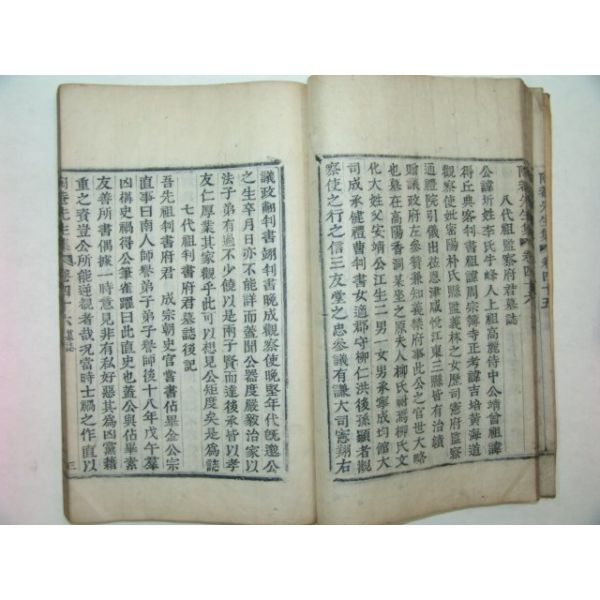 八代祖監察府君墓誌
公諱圻姓李氏牛峰人上祖高麗侍中公靖曾祖諱
得丘典客判書祖諱周宗簿寺正考諱吉培黃海道
觀察使妣密陽朴氏縣監義林之女歷司憲府監察
通禮院引儀出莅恩津咸悅江東三縣皆有治績
贈議政府左參贊兼義禁府事此公之官世大略
也墓在高陽香洞某坐之原夫人柳氏祔焉柳氏文
化大姓父安靖公江生二男一女男承寧成均館大
司成承健禮曹判書女適郡守柳仁洪後孫顯者觀
察使之行之信三友堂之忠參議有謙大司憲翔右
議政䎘判書翊判書晩成觀察使晩堅年代旣邈公
之生卒月日亦不能詳而蓋聞公器度嚴毅治家以
法子弟有過不少饒以是兩子賢而達後承皆以孝
友仁厚業其家觀乎此可以想見公矩度矣是爲誌
七代祖判書府君墓誌後記
吾先祖判書府君 成宗朝史官嘗書佔畢金公宗
直事曰南人師譽弟子弟子譽師後十八年戊午羣
凶構史禍得公筆雀躍曰此直史也蓋公與佔畢素
友善所書偶據一時意見非有私好惡其爲凶黨藉
重之資豈公所能逆覩者哉况當時士禍之作直以
三